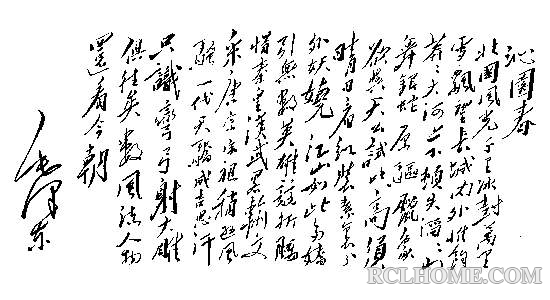 沁園春
北國風光千里冰封萬里
雪飄望長城內外惟餘
莽〻大河上下頓失滔〻山
舞銀蛇原驅臘象
欲與天公試比高須
晴日看紅裝素裹分
外妖嬈 江山如此多嬌
引無數英雄競折腰
惜秦皇漢武略輸文
采唐宗宋祖稍遜風
騷一代天驕成吉思汗
只識彎弓射大雕
俱往矣數風流人物
還看今朝
毛澤東
RCLHOME.COM